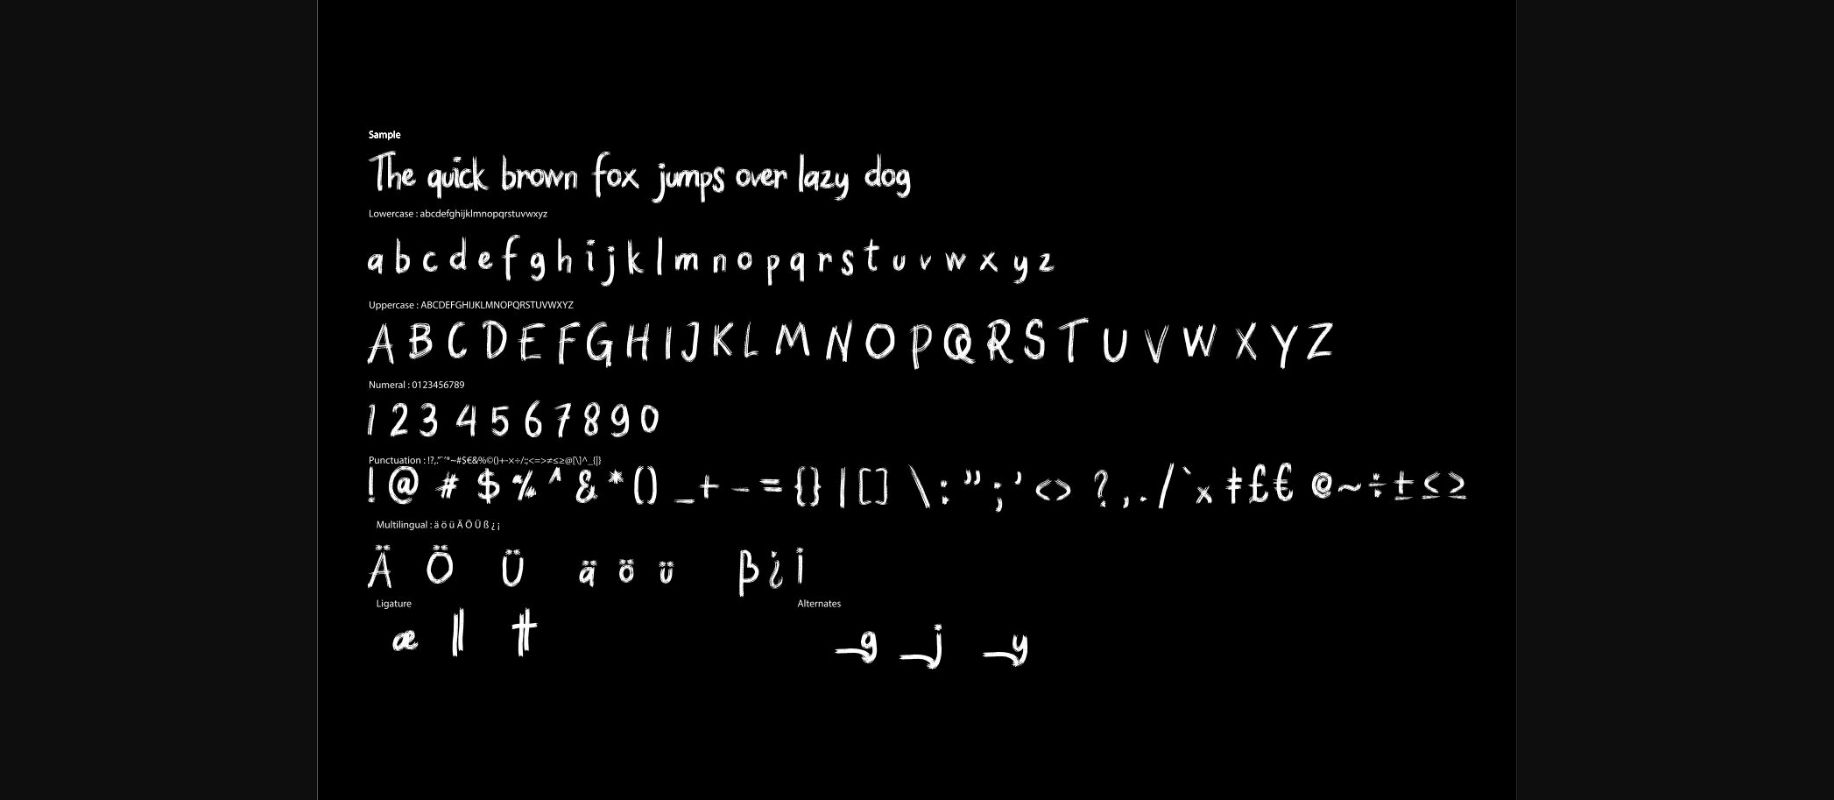 Sample
The quick brown fox jumps over lazy dog
Lowercase : abcdefghijklmnopqrstuvwxyz
a b c d e f g h i j k l m n o p q r s t u v w x y z
Uppercase : ABCDEFGHIJKLMNOPQRSTUVWXYZ
A B C D E F G H I J K L M N O P Q R S T U V W X Y Z
Numeral : 0123456789
1 2 3 4 5 6 7 8 9 0
Punctuation : !?,.:¨˝*~#$€&%©()+-×÷/:;<=>≠≤≥@[\]^_{|}
! @ # $ % ^ & * ( ) _ + - = { } | [ ] \ : ” ; ’ < > ? , . / ` x ǂ £ € @ ~ ÷ ± ≤ ≥
Multilingual : ä ö ü Ä Ö Ü ß ¿ ¡
Ä Ö Ü ä ö ü β ¿ i
Ligature Alternates
æ ll tt _g _j _y